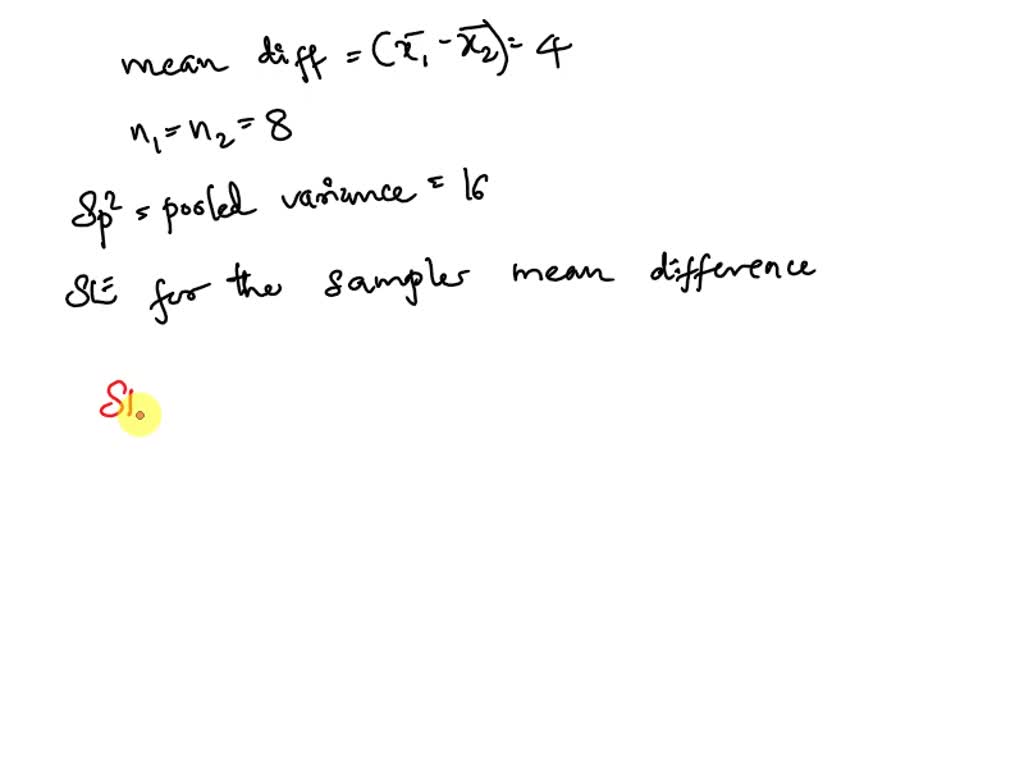 mean diff = (x̄₁ - x̄₂) = 4
n₁ = n₂ = 8
Sp² = pooled variance = 16
SE for the samples mean difference
SE